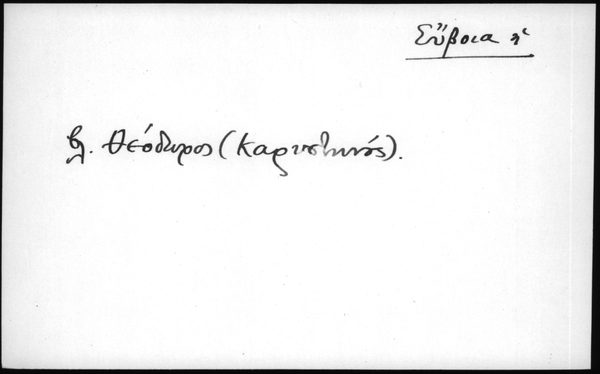 Εὔβοια
βλ. Θεόδωρος (Καρυστινός).